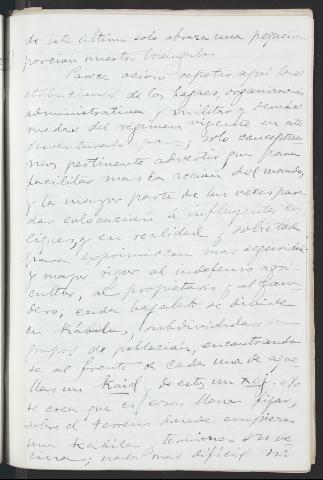 de este último solo abraza una pequeña
porción nuestro triángulo.
Parece ocioso repetir aquí las
atribuciones de los bajaes, organización
administrativa y militar y demás
ruedas del régimen vigente en este
desventurado país; solo conceptua-
mos pertinente advertir que para
facilitar mas la acción del mando,
y la mayor parte de las veces para
dar colocación á influyentes ca-
ciques, y en realidad y sobre todo
para exprimir con mas seguridad
y mayor rigor al indefenso agri-
cultor, al propietario y al gana-
dero, cada bajalato se divide
en Kábilas, subdivididas en
grupos de población, encontrando-
se al frente de cada una de aque-
llas un Kaid, de estos un xej.
te crea que es cosa llana fijar,
sobre el terreno donde empieza
una Kábila y termina su ve-
cina; nada mas difícil ni